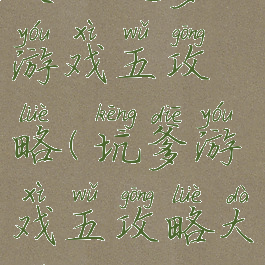 yóu xì wǔ gōng
游戏五攻
lüè kēng diē yóu
略(坑爹游
xì wǔ gōng lüè dà
戏五攻略大